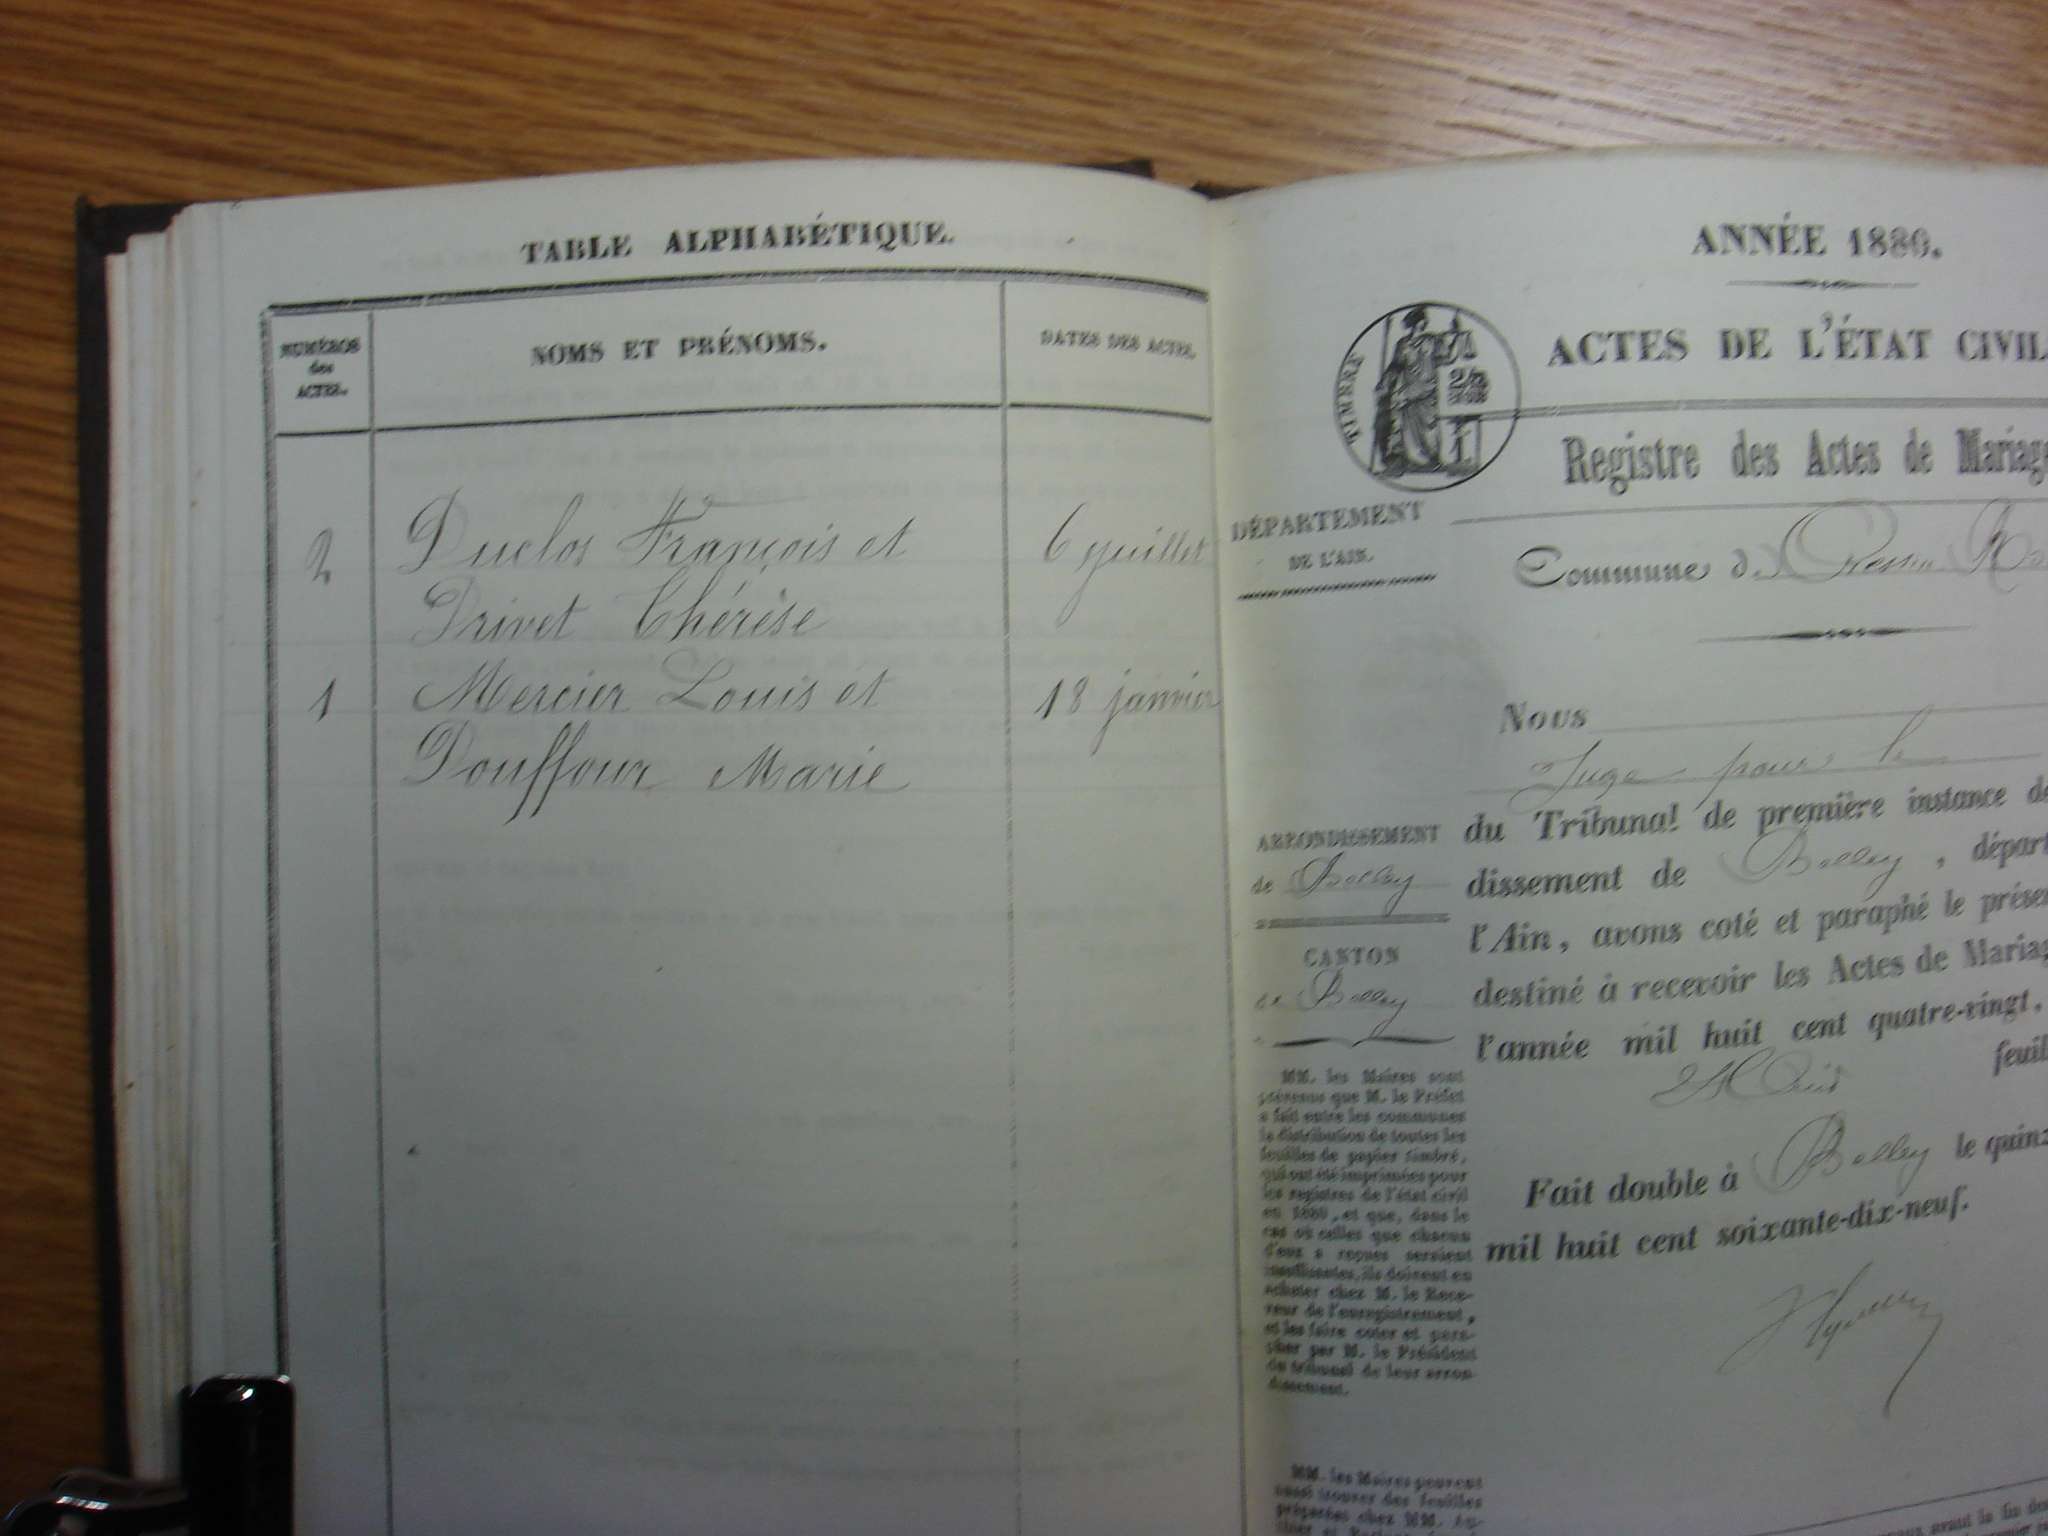 TABLE ALPHABÉTIQUE.
NUMÉROS
des
ACTES.
NOMS ET PRÉNOMS.
DATES DES ACTES.
2
Duclos François et
6 juillet
Privet Thérèse
1
Mercier Louis et
18 janvier
Pouffour Marie
ANNÉE 1880.
ACTES DE L'ÉTAT CIVIL
TIMBRE
Registre des Actes de Mariage
DÉPARTEMENT
DE L'AIN.
Commune de
Nous
Juge pour le
du Tribunal de première instance de
ARRONDISSEMENT
de Belley
dissement de Belley, départ
l'Ain, avons coté et paraphé le prése
CANTON
de Belley
destiné à recevoir les Actes de Mariag
l'année mil huit cent quatre-vingt,
feuil
Fait double à Belley le quinz
mil huit cent soixante-dix-neuf.
MM. les Maires sont
prévenus que M. le Préfet
a fait entre les communes
la distribution de toutes les
feuilles de papier timbré,
qui ont été imprimées pour
les registres de l'état civil
en 1880, et que, dans le
cas où celles que chacun
d'eux a reçues seraient
insuffisantes, ils doivent en
acheter chez M. le Rece-
veur de l'enregistrement,
et les faire coter et para-
pher par M. le Président
du tribunal de leur arron-
dissement.
MM. les Maires peuvent
aussi trouver des feuilles
préparées chez MM.
avant la fin de